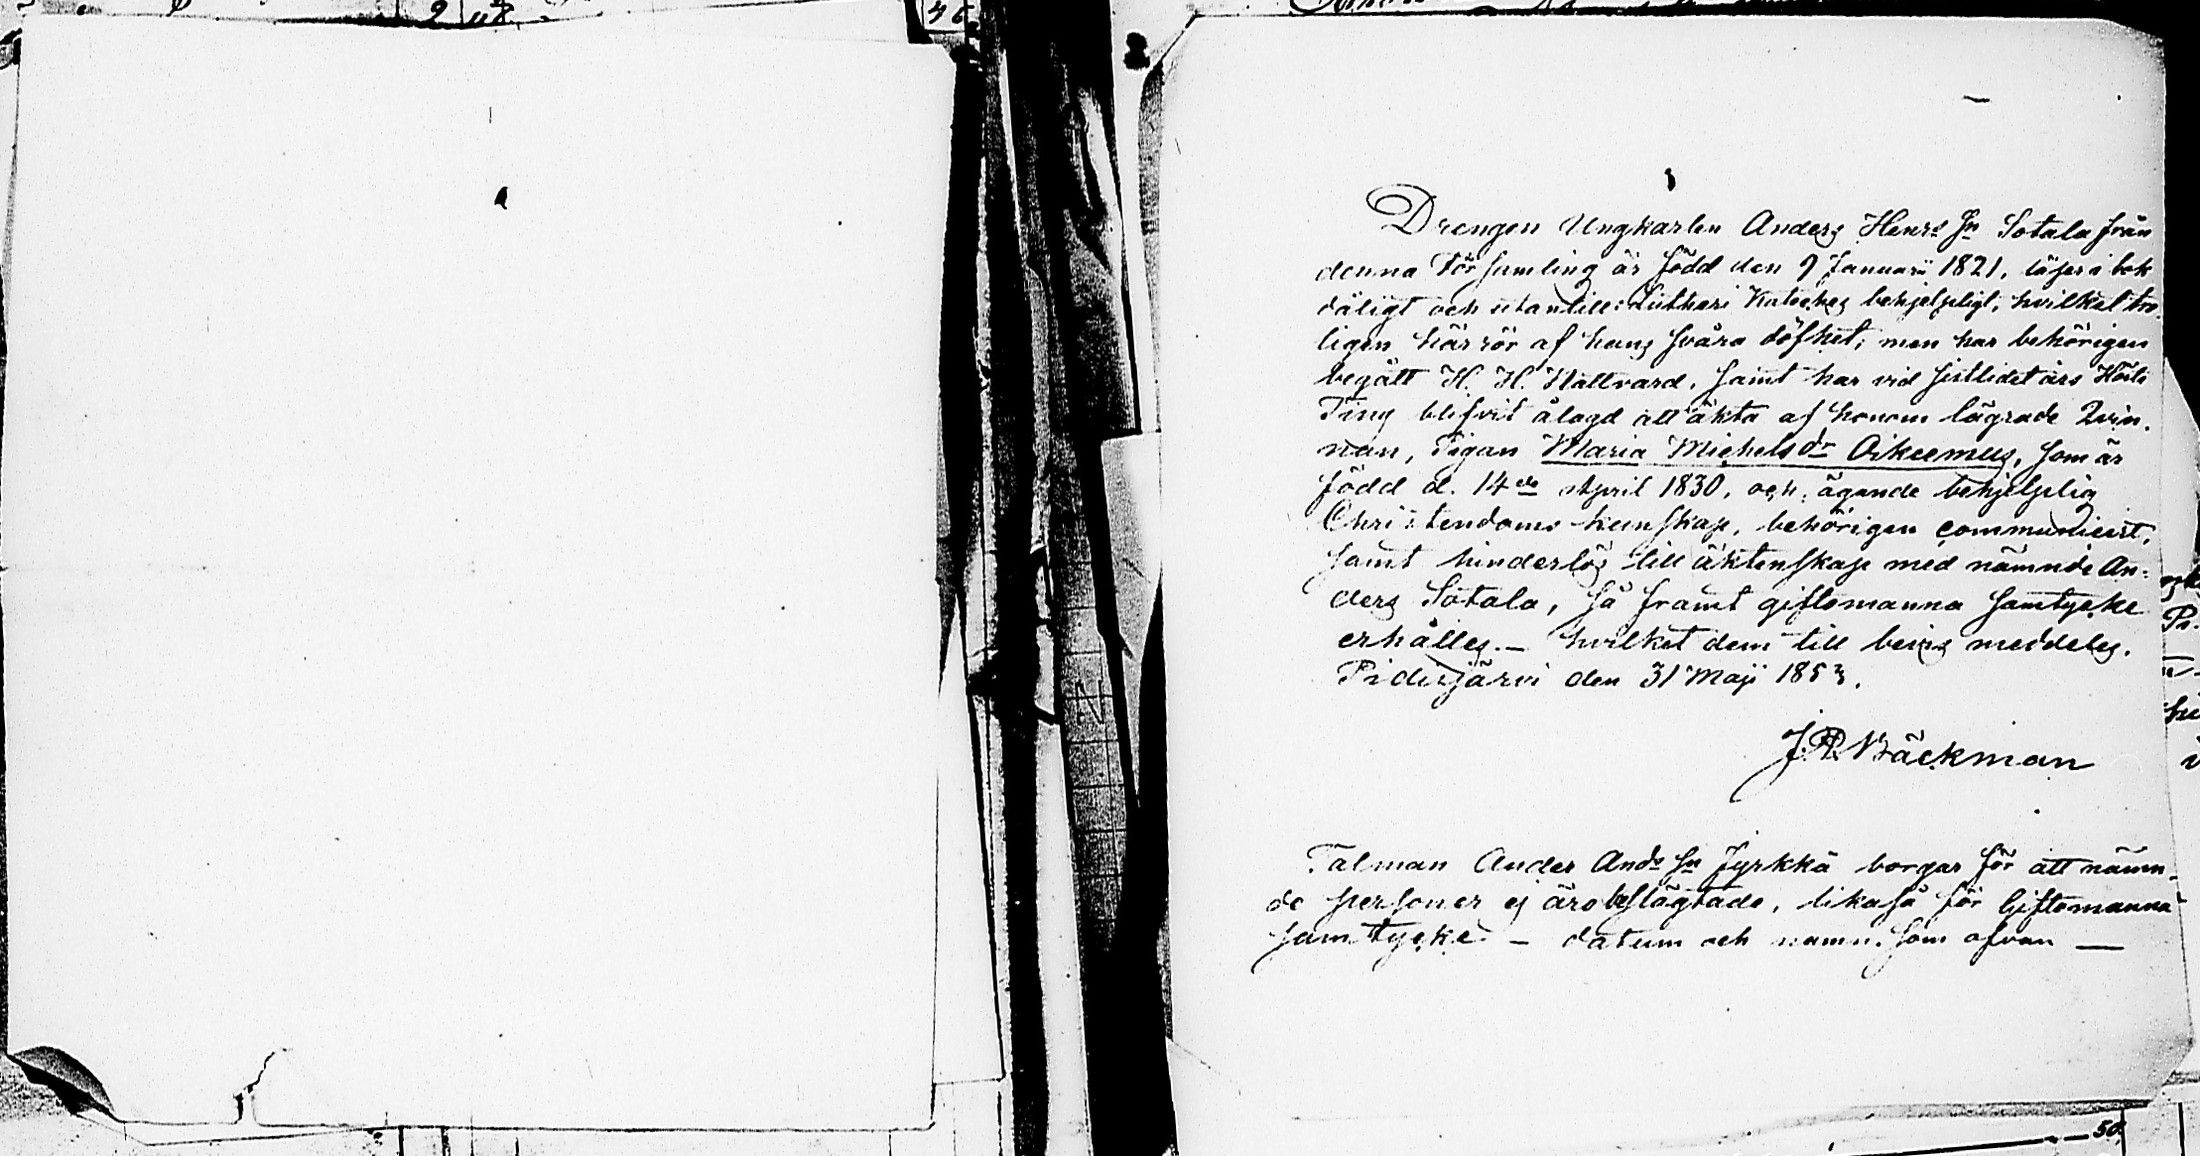 Drengen Ungkarlen Anders Henrs Sn Sotala från
denna Församling är född den 9 Januarii 1821, läser i bok
dåligt och utantill: Lutheri Kateches behjelpligt, hvilket tro-
ligen härrör af hans svåra döfhet; men har behörigen
begått H. H. Nattvard, samt har vid sistlidet års Hösle
Ting blifvit ålagd att äkta af honom lägrade Qvin-
nan, Pigan Maria Michelsdr Oikeemus, som är
född d. 14de April 1830, och, ägande behjelplig
Christendoms kunskap, behörigen communicert,
samt hinderlös till äktenskap med nämnde An-
ders Sotala, så framt giftomanna samtycke
erhålles. – hvilket dem till bevis meddelas.
Pidisjärvi den 31 Maji 1853.
J. R. Bäckman
Talman Ander Ands Sn Jyrkkä borgar för att nämn-
de personer ej äro beslägtade, likaså för Giftomanna
samtycke – datum och namn som ofvan —
50.